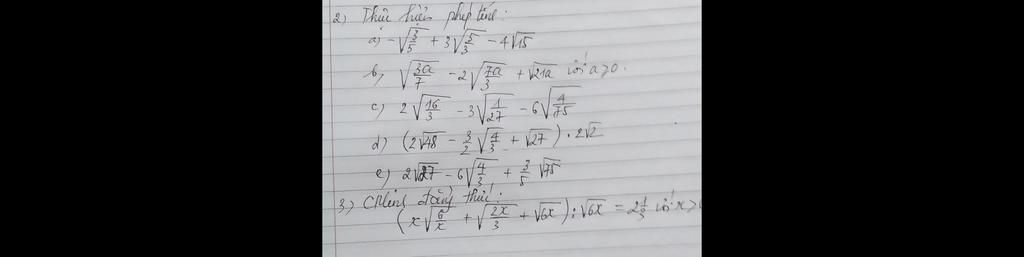 2) Thực hiện phép tính:
a) -√(3/5) + 3√(5/3) - 4√15
b, √(3a/7) - 2√(7a/3) + √21a với a>0.
c) 2√(16/3) - 3√(1/27) - 6√(4/75)
d) (2√48 - 3/2 √(4/3) + √27) . 2√2
e) 2√27 - 6√(4/3) + 3/5 √75
3,) CMinh đẳng thức:
(x√(6/x) + √(2x/3) + √6x) : √6x = 2 1/3 với x>0